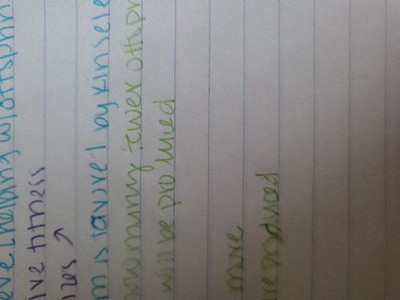 helping w/offsprin
ive fitness
m is favored by kin sele
how many fewer offspr
will be produced
more
reproduced